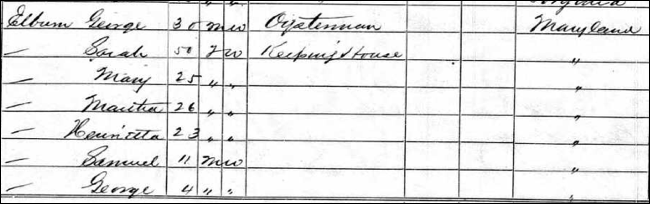 Elburn George 30 m w Oysterman Maryland
— Sarah 50 F w Keeping House "
— Mary 25 " " "
— Martha 26 " " "
— Henrietta 23 " " "
— Samuel 11 m w "
— George 4 " " "